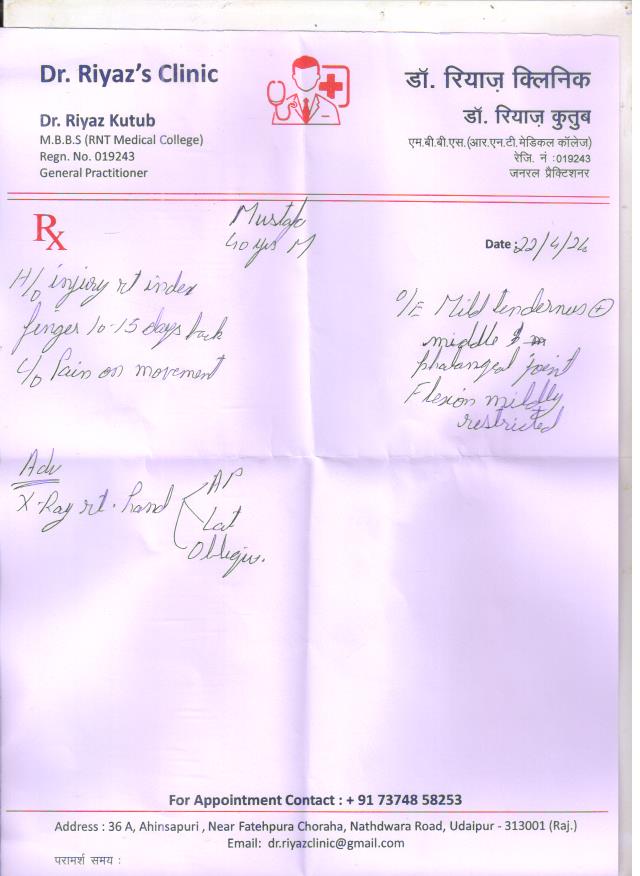 Dr. Riyaz's Clinic
Dr. Riyaz Kutub
M.B.B.S (RNT Medical College)
Regn. No. 019243
General Practitioner
डॉ. रियाज़ क्लिनिक
डॉ. रियाज़ कुतुब
एम.बी.बी.एस.(आर.एन.टी.मेडिकल कॉलेज)
रेजि. नं :019243
जनरल प्रैक्टिशनर
Rx
40 yrs M
Date :22/4/24
H/o injury rt index
finger 10-15 days back
C/o Pain on movement
O/E Mild tendernus +
middle
phalangeal joint
Flexion mildly
restricted
Adv
X-Ray rt. hand
AP
Lat
Oblique.
For Appointment Contact : + 91 73748 58253
Address : 36 A, Ahinsapuri , Near Fatehpura Choraha, Nathdwara Road, Udaipur - 313001 (Raj.)
Email: dr.riyazclinic@gmail.com
परामर्श समय :